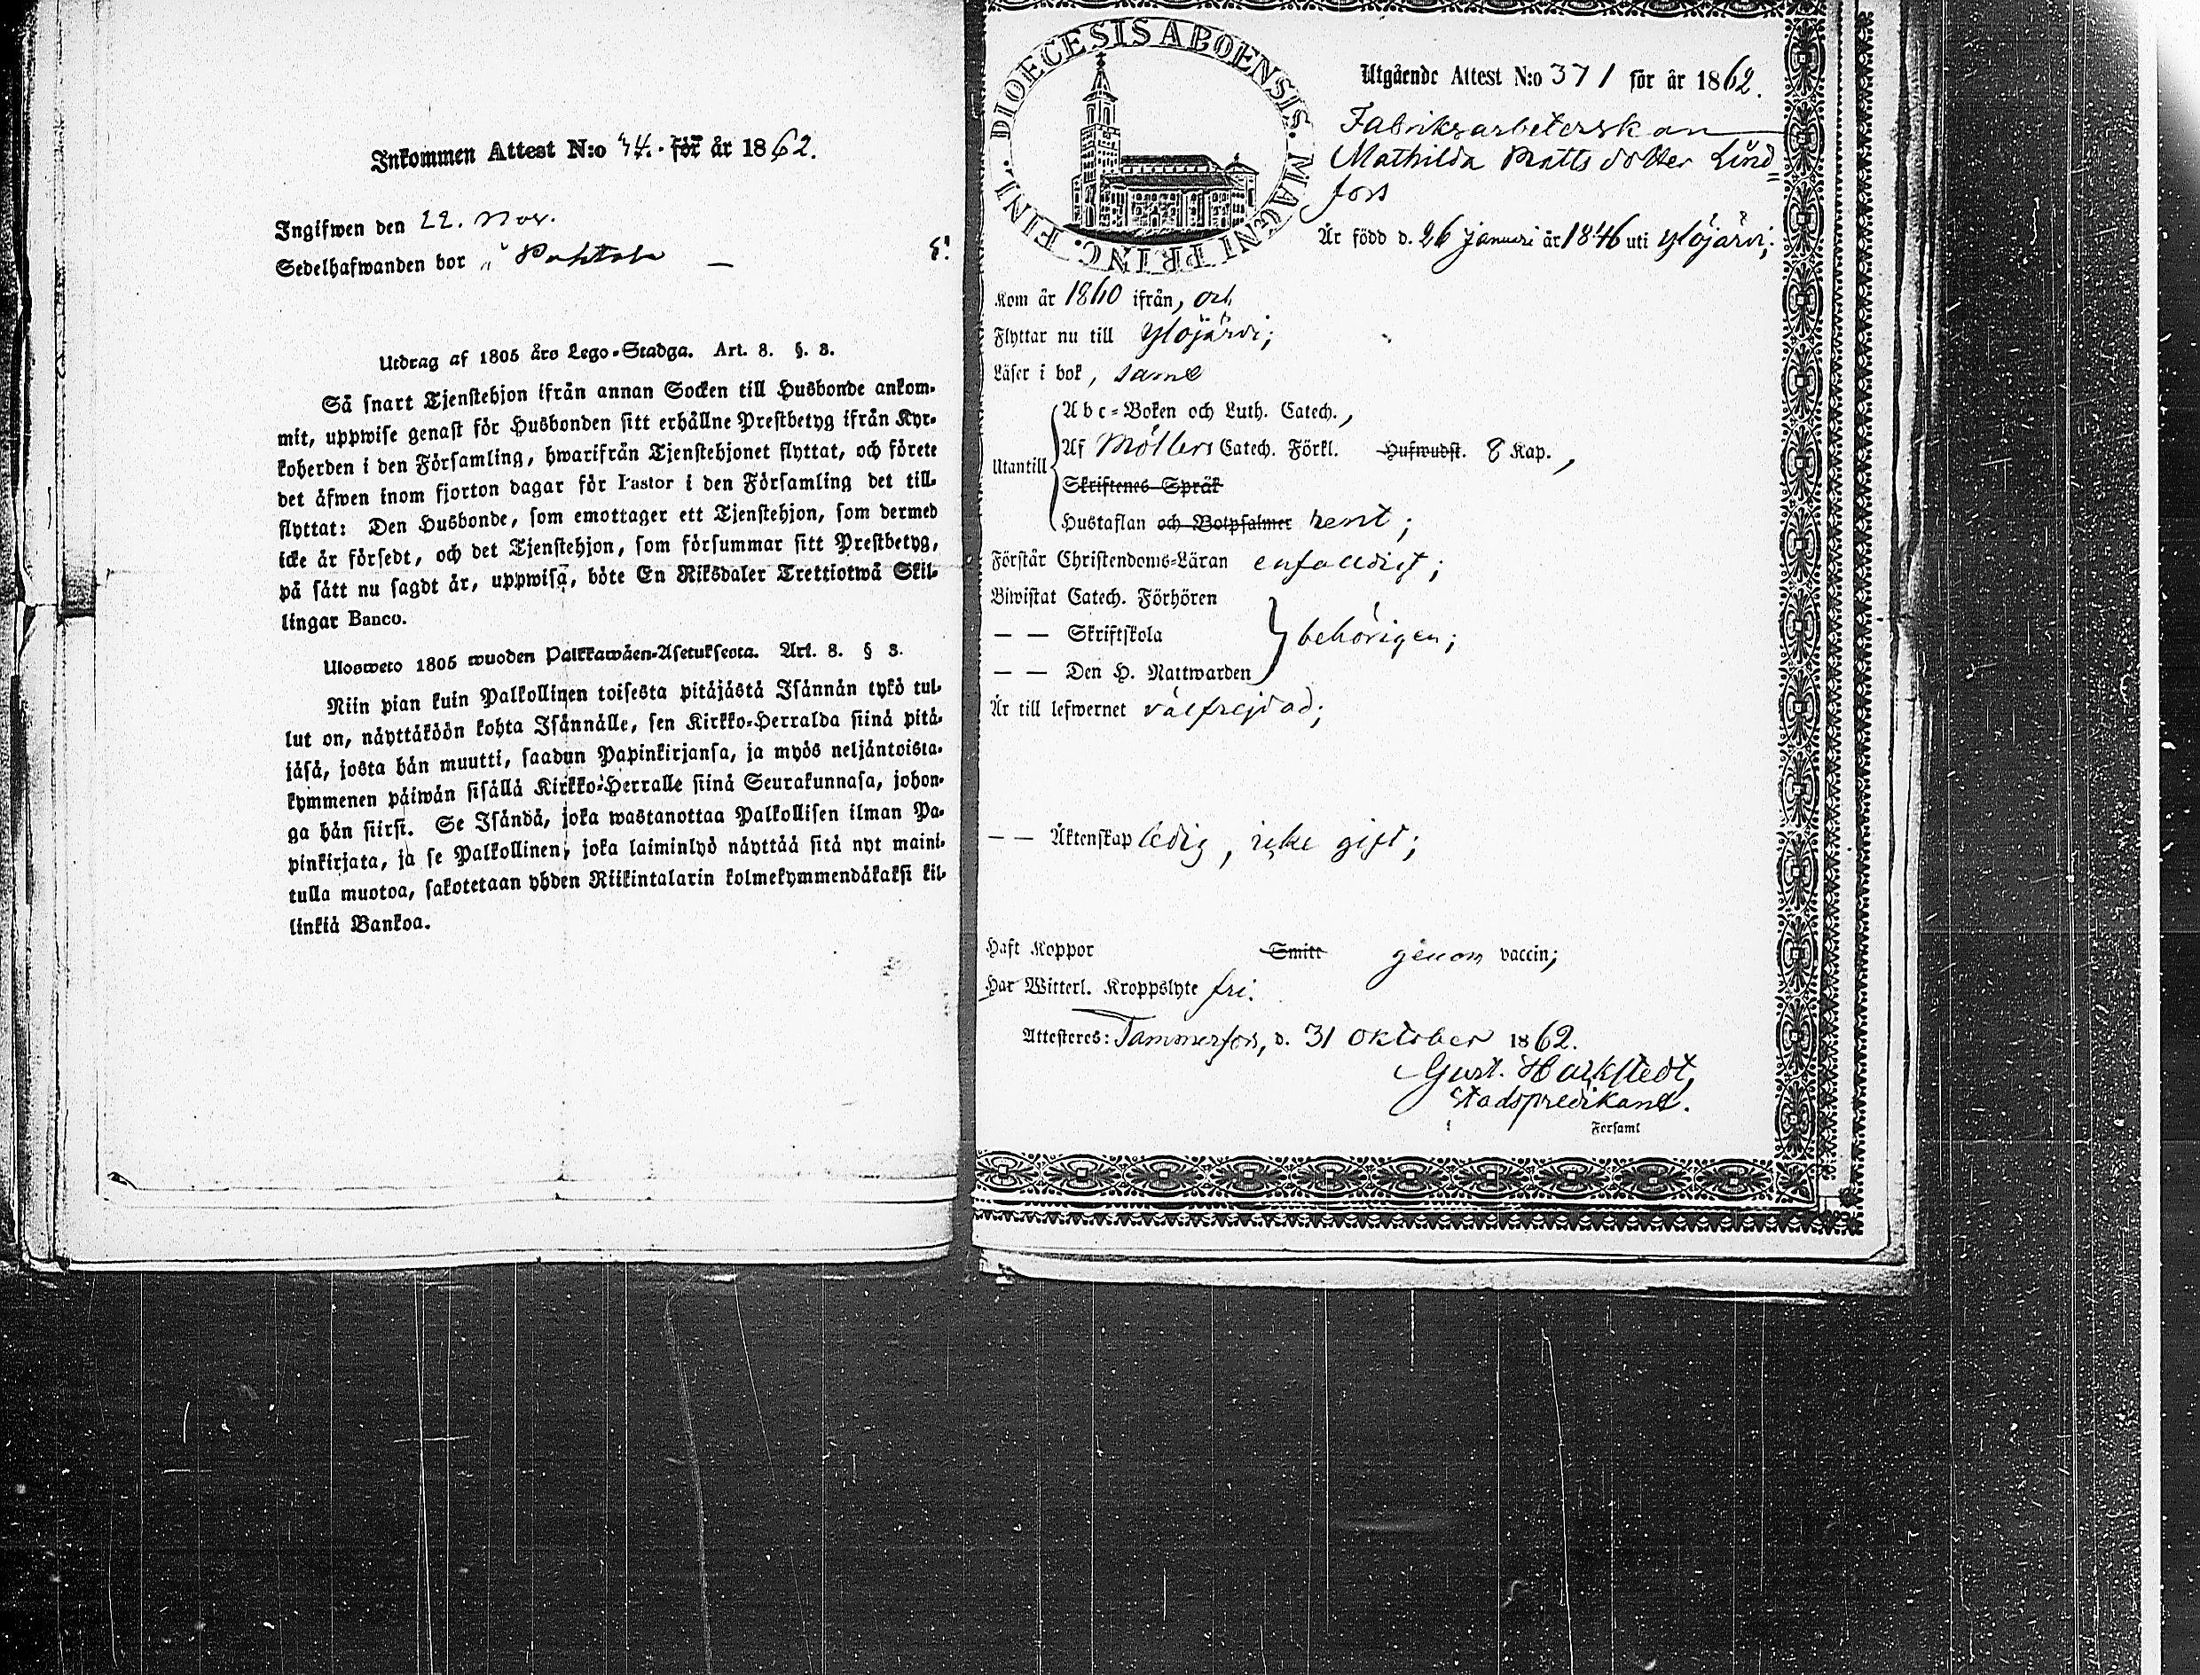 Inkommen Attest N:o 34. för år 1862.
Ingifwen den 22. Nov.
Sedelhafwanden bor i Pohtola —
Utdrag af 1805 års Lego-Stadga. Art. 8. §. 3.
Så snart Tjenstehjon ifrån annan Socken till Husbonde ankom-
mit, uppwise genast för Husbonden sitt erhållne Prestbetyg ifrån Kyr-
koherden i den Församling, hwarifrån Tjenstehjonet flyttat, och förete
det äfwen inom fjorton dagar för Pastor i den Församling det till-
flyttat: Den Husbonde, som emottager ett Tjenstehjon, som dermed
icke är försedt, och det Tjenstehjon, som försummar sitt Prestbetyg,
på sätt nu sagdt är, uppwisa, böte En Riksdaler Trettiotwå Skil-
lingar Banco.
Ulosweto 1805 wuoden Palkkawäen-Asetuksesta. Art. 8. § 3.
Niin pian kuin Palkollinen toisesta pitäjästä Isännän tykö tul-
lut on, näyttäköön kohta Isännälle, sen Kirkko-Herralda siinä pitä-
jäsä, josta hän muutti, saadun Papinkirjansa, ja myös neljäntoista-
kymmenen päiwän sisällä Kirkko-Herralle siinä Seurakunnasa, johon-
ga hän siirsi. Se Isändä, joka wastanottaa Palkollisen ilman Pa-
pinkirjata, ja se Palkollinen, joka laiminlyö näyttää sitä nyt maini-
tulla muotoa, sakotetaan yhden Riikintalarin kolmekymmendäkaksi kil-
linkiä Bankoa.
DIOECESIS ABOENSIS. MAGNI PRINC. FINL.
Utgående Attest N:o 371 för år 1862.
Fabriksarbeterskan
Mathilda Mattsdotter Lind=
fors
Är född d. 26 Januari år 1846 uti Ylöjärvi;
Kom år 1860 ifrån, och
Flyttar nu till Ylöjärvi;
Läser i bok, samt
Utantill
Abc-Boken och Luth. Catech.,
Af Möllers Catech. Förkl. Hufwudst. 8 Kap.,
Skriftenes Språk
Hustaflan och Botpsalmer rent;
Förstår Christendoms-Läran enfaldigt;
Biwistat Catech. Förhören
— — Skriftskola behörigen;
— — Den H. Nattwarden
Är till lefwernet välfrejdad;
— — Äktenskap ledig, icke gift;
Haft Koppor Smitt genom vaccin;
Har Witterl. Kroppslyte fri.
Attesteres: Tammerfors, d. 31 Oktober 1862.
Gust.
Stadspredikant.
Forsaml